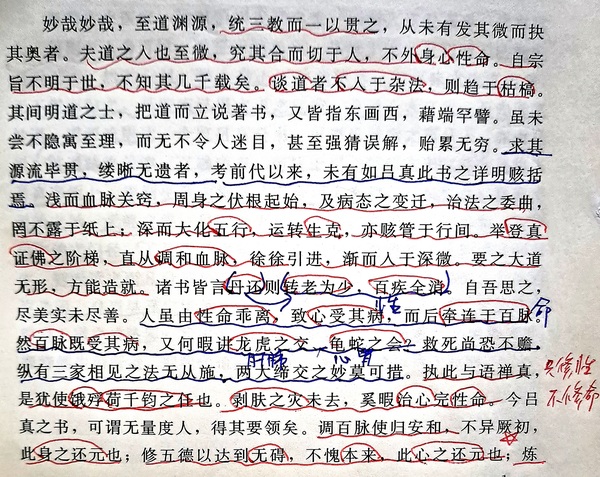 妙哉妙哉，至道渊源，统三教而一以贯之，从未有发其微而抉
其奥者。夫道之入也至微，究其合而切于人，不外身心性命。自宗
旨不明于世，不知其几千载矣。谈道者不入于杂法，则趋于枯槁。
其间明道之士，把道而立说著书，又皆指东画西，藉端罕譬。虽未
尝不隐寓至理，而无不令人迷目，甚至强猜误解，贻累无穷。求其
源流毕贯，缕晰无遗者，考前代以来，未有如吕真此书之详明赅括
焉。浅而血脉关窍，周身之伏根起始，及病态之变迁，治法之委曲，
罔不露于纸上；深而大化五行，运转生克，亦赅管于行间。举登真
证佛之阶梯，直从调和血脉，徐徐引进，渐而人于深微。要之大道
无形，方能造就。诸书皆言丹还则转老为少，百疾全消。自吾思之，
尽美实未尽善。人虽由性命乖离，致心受其病，而后牵连于百脉。
性 命
然百脉既受其病，又何暇讲龙虎之交、龟蛇之会？救死尚恐不赡，
肝肺 心肾
纵有三家相见之法无从施，两大缔交之妙莫可措。执此与语禅真，
只修性
是犹使饿殍荷千钧之任也。剥肤之灾未去，奚暇治心完性命。今吕
不修命
真之书，可谓无量度人，得其要领矣。调百脉使归安和，不异厥初，
此身之还元也；修五德以达到无碍，不愧本来，此心之还元也；炼